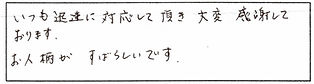 いつも迅速に対応して頂き大変感謝して
おります.
お人柄がすばらしいです.